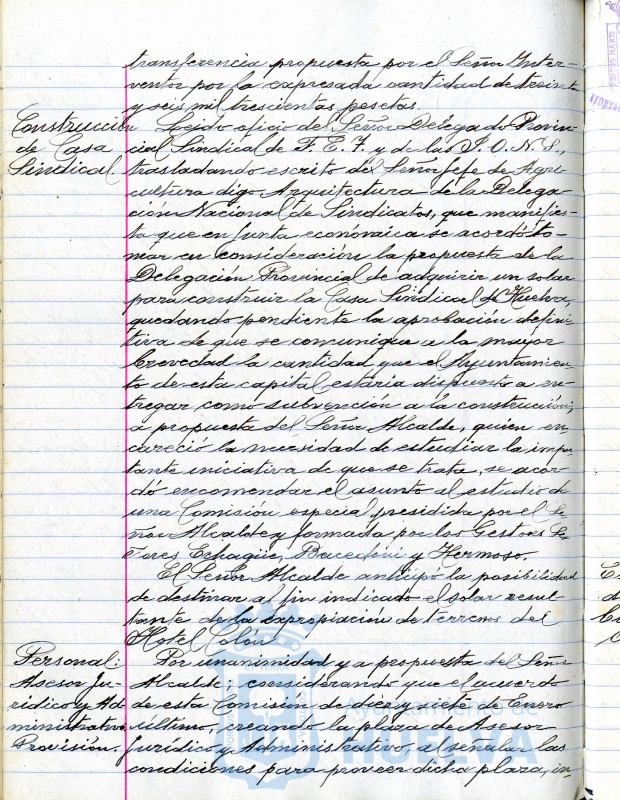 transferencia propuesta por el Señor Inter-
ventor por la expresada cantidad de treinta
y seis mil trescientas pesetas.
Construcción
de Casa
Sindical
Leido oficio del Señor Delegado Provin-
cial Sindical de F. E. T. y de las J. O. N. S.,
trasladando escrito del Señor Jefe de Agri-
cultura digo Arquitectura de la Delega-
cion Nacional de Sindicatos, que manifies-
ta que en Junta económica se acordó to-
mar en consideración la propuesta de la
Delegación Provincial de adquirir un solar
para construir la Casa Sindical de Huelva,
quedando pendiente la aprobación defini-
tiva de que se comunique a la mayor
brevedad la cantidad que el Ayuntamien-
to de esta capital estaria dispuesto a en-
tregar como subvención a la construcción;
a propuesta del Señor Alcalde, quien en-
careció la necesidad de estudiar la impor-
tante iniciativa de que se trata, se acor-
dó encomendar el asunto al estudio de
una Comisión especial, presidida por el Se-
ñor Alcalde y formada por los Gestores Se-
ñores Echagüe, Bacedoni y Hermoso.
El Señor Alcalde anticipó la posibilidad
de destinar al fin indicado el solar resul-
tante de la expropiación de terrenos del
Hotel Colón
Personal:
Asesor Ju-
ridico y Ad-
ministrativo.
Provisión.
Por unanimidad y a propuesta del Señor
Alcalde: considerando que el acuerdo
de esta Comisión de diez y siete de Enero
último, creando la plaza de Asesor
Juridico y Administrativo, al señalar las
condiciones para proveer dicha plaza, in-
Ayuntamiento de
HUELVA